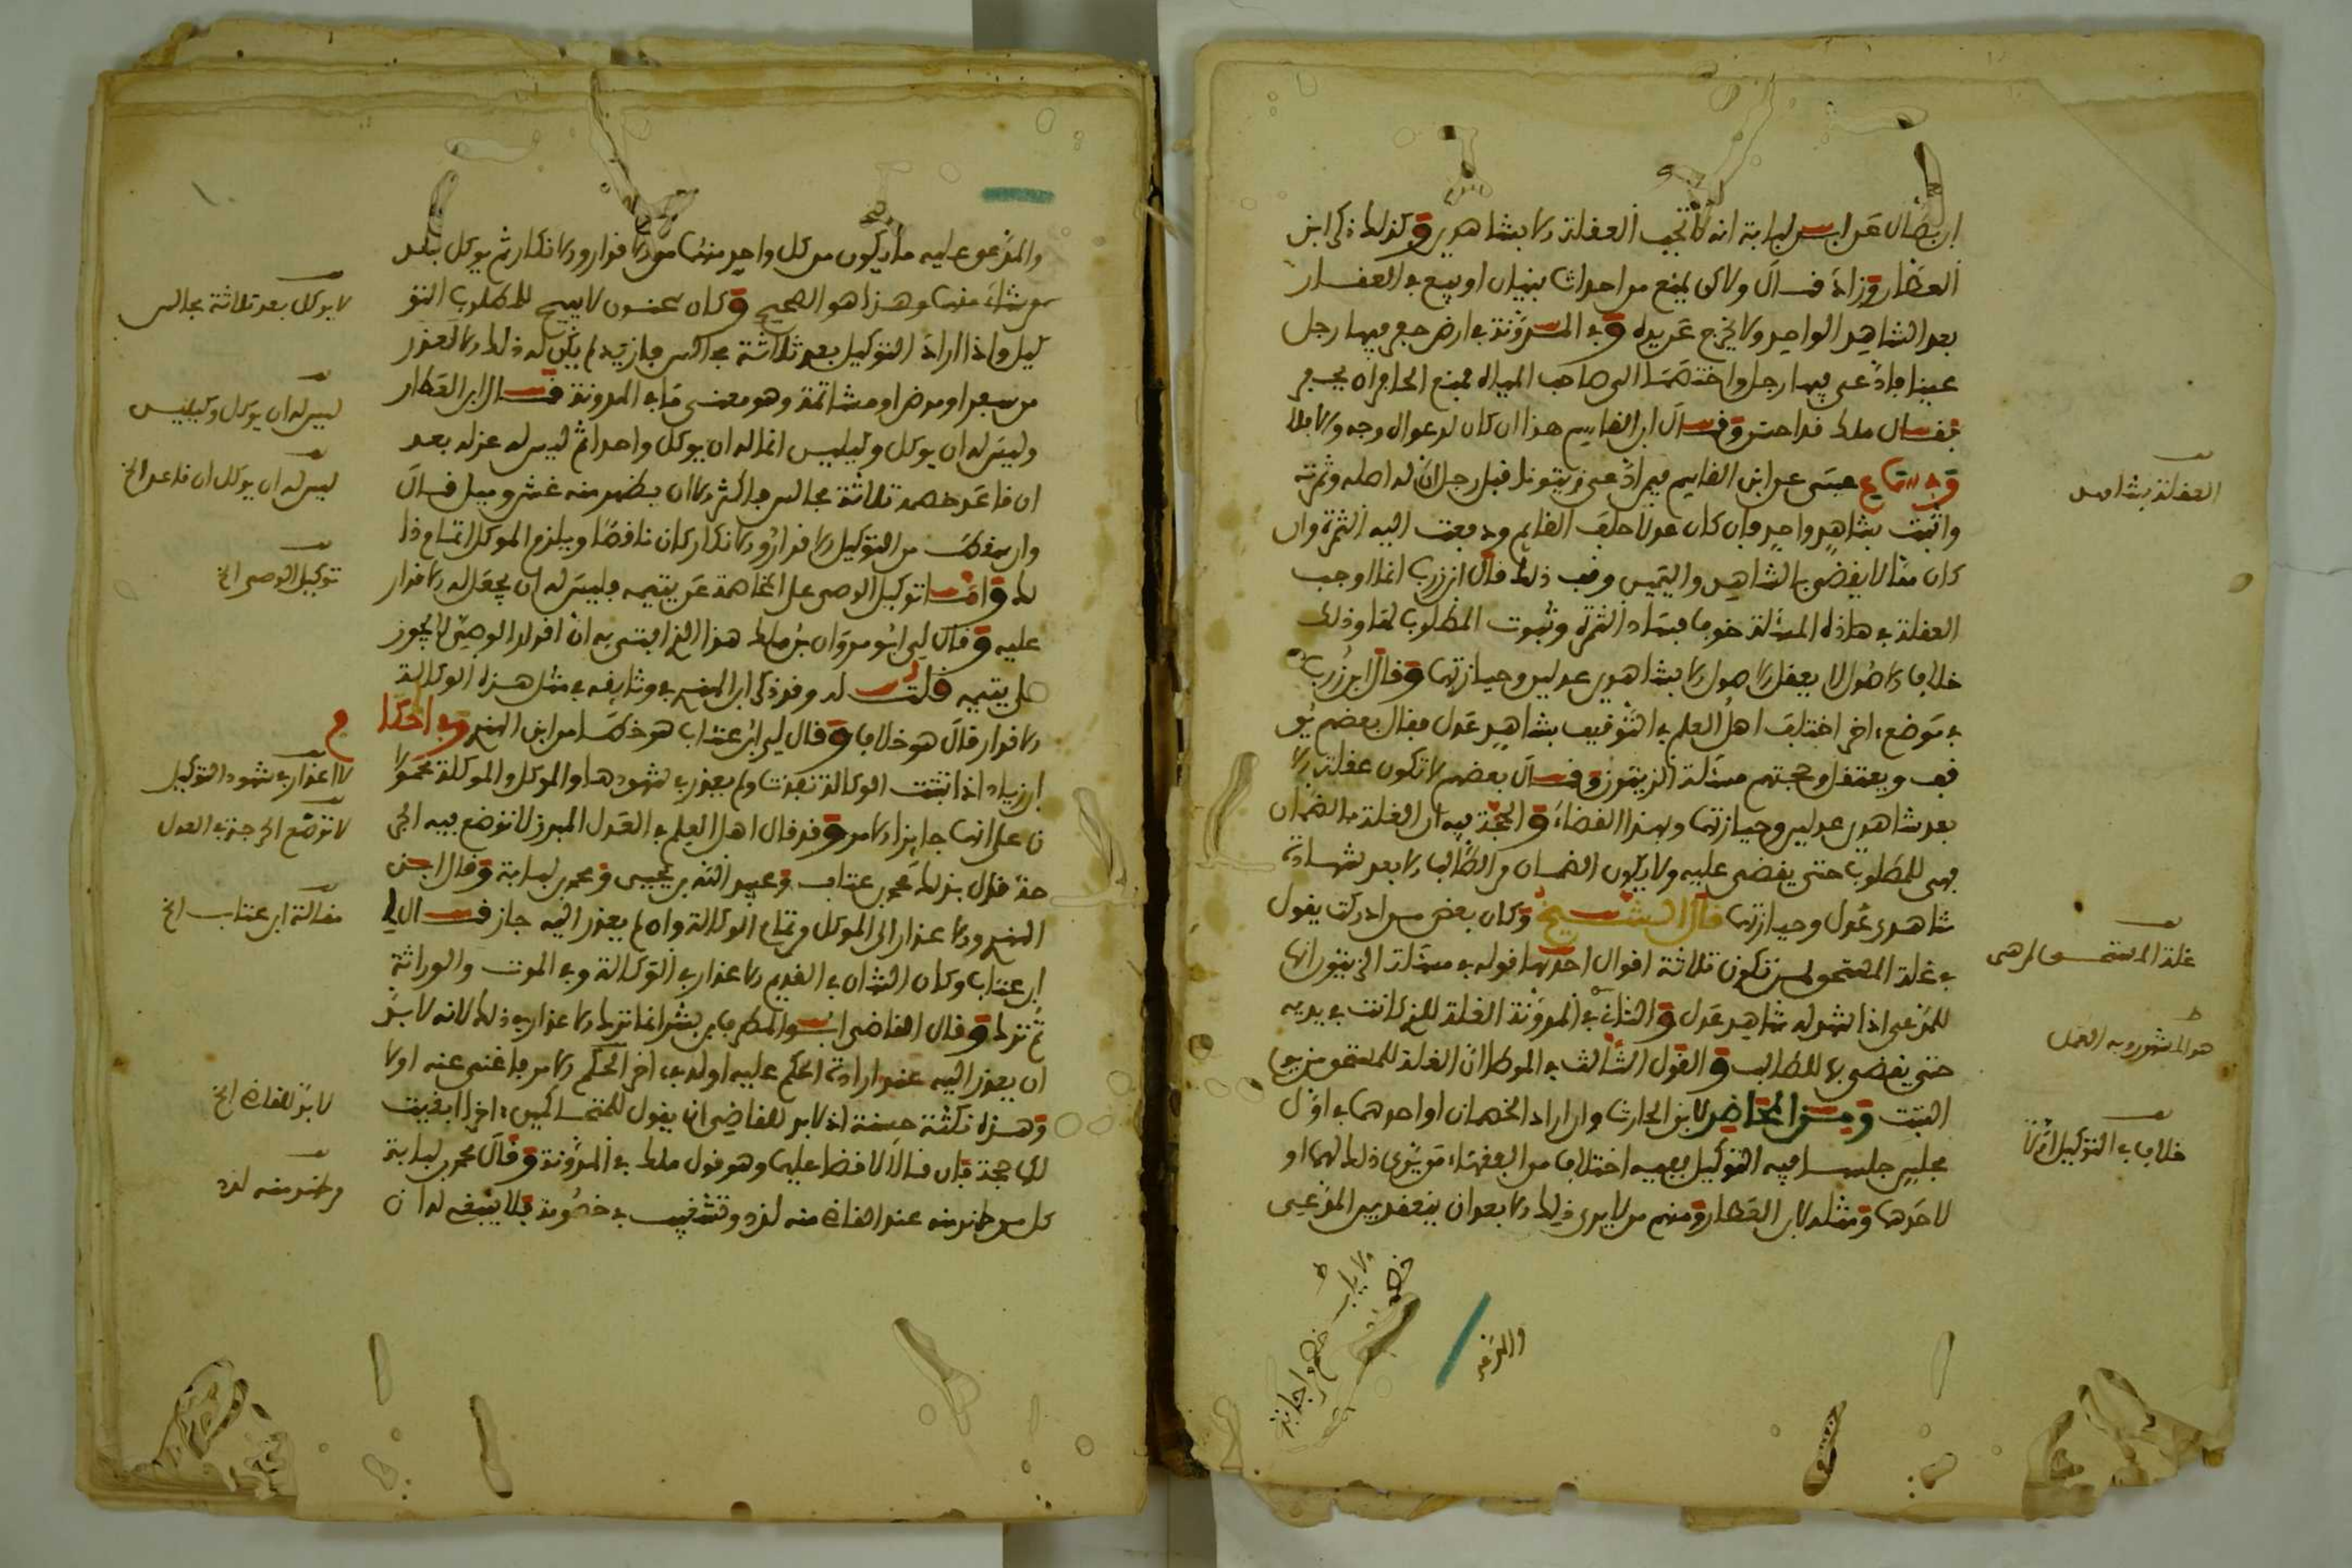 ابن بطال عن ابن لبابة انه لا تجب العقلة الا بشاهدين وكذلك ذكر ابن
العطار وزاد قال ولاكن يمنع من احداث بنيان او بيع في العقار
بعد الشاهد الواحد ولا يخرج عن يده وفي المدونة في ارض حفر فيها رجل
عينا فادعى فيها رجل واختصما الى صاحب المياه فمنع الحافر ان يحفر
فقال ملك قد احسن وقال ابن القاسم هذا ان كان لدعواه وجه والا فلا
وفي سماع عيسى عن ابن القاسم فيمن ادعى زيتونا قبل رجل ان له اصله وثمرته
واثبت بشاهد واحد فان كان عدلا حلف القائم ودفعت اليه الثمرة وان
كان ممن لا يقضى بالشاهد واليمين وقف ذلك قال ابن زرب انما اوجب
العقلة في هاذه المسئلة خوف فساد الثمرة وثبوت المطلوب لها وذلك
خلاف الاصول لا يعقل الاصول الا بشاهدين عدلين وحيازتهما وقال ابن زرب
في موضع اخر اختلف اهل العلم في التوقيف بشاهد عدل فقال بعضهم يو
قف ويعتقل وحجتهم مسئلة الزيتون وقال بعضهم لا تكون عقلة الا
بعد شاهدين عدلين وحيازتهما وبهذا القضاء والحجة فيه ان الغلة بالضمان
فهي للمطلوب حتى يقضى عليه ولا يكون الضمان من الطالب الا بعد شهادة
شاهدي عدل وحيازتهما قال الشيخ وكان بعض من ادركت يقول
في غلة المستحق لمن تكون ثلاثة اقوال احدها قوله في مسئلة الزيتون انها
للمدعى اذا شهد له شاهد عدل والثاني في المدونة الغلة للذي كانت في يديه
حتى يقضى بها للطالب والقول الثالث في الموطا ان الغلة للمستحق من يوم
الثبت ومن المحاضر لابن الحارث وان اراد الخصمان او احدهما في اول
مجلس جلسا فيه التوكيل ففيه اختلاف من الفقهاء من يرى ذلك لهما او
لاحدهما ومثله لابن العطار ومنهم من لا يرى ذلك الا بعد ان ينعقد بين المدعي
والمدعى
العقلة بشاهدين
غلة المستحق لمن هي
هو المشهور وبه العمل
خلاف في التوكيل اولا
والمدعى عليه ما يكون من كل واحد منهما من الاقرار والانكار ثم يوكل بعد
من شاء منهما وهذا هو الصحيح وكان سحنون لا يبيح للمطلوب التو
كيل واذا اراد التوكيل بعد ثلاثة مجالس فازيد لم يكن له ذلك الا لعذر
من سفر او مرض او مشاتمة وهو معنى ما في المدونة قال ابن العطار
وليس له ان يوكل وكيلين انما له ان يوكل واحدا ثم ليس له عزله بعد
ان قاعد خصمه ثلاثة مجالس فاكثر الا ان يظهر منه غش وميل قال
وان سقط من التوكيل الاقرار والانكار كان ناقصا ويلزم الموكل اتمام ذا
لك واما توكيل الوصي على المخاصمة عن يتيمه فليس له ان يجعل له الاقرار
عليه وقال لي ابو مروان بن ملك هذا الذي افتى به ان اقرار الوصي لا يجوز
على يتيمه قلت له وقد ذكر ابن الهندي في وثائقه في مثل هذه الوكالة
الاقرار قال هو خلاف وقال لي ابن عتاب هو خطا من ابن الهندي وفي احكام
ابن زياد اذا ثبتت الوكالة نفذت ولم يعذر في شهودها والموكل والموكلة محمولا
ن على انهما جايزا الامر وقد قال اهل العلم في العدل المبرز لا توضع فيه الجر
حة قال بذلك محمد بن غالب وعبيد الله بن يحيى ومحمد بن لبابة وقال ابن
الهندي والاعذار الى الموكل من تمام الوكالة وان لم يعذر اليه جاز قال لي
ابن عتاب وكان الشان في القديم الاعذار في الوكالة وفي الموت والوراثة
ثم ترك وقال القاضي ابو المطرف بن بشر انما ترك الاعذار في ذلك لانه لا بد
ان يعذر اليه عند ارادة الحكم عليه اوله في اخر الحكم الامر فاغنى عنه اولا
وهذه نكتة حسنة اذ لا بد للقاضي ان يقول للمتحاكمين اخرا ابقيت
لكما حجة فان قالا لا قضا عليهما وهو قول ملك في المدونة وقال محمد بن لبابة
كل من ظهر منه عند القاضي منه لدد وتشغيب في خصومة فلا ينبغي له ان
لا يوكل بعد ثلاثة مجالس
ليس له ان يوكل وكيلين
ليس له ان يوكل ان قاعد الخ
توكيل الوصي الخ
لا اعذار في شهود التوكيل
لا توضع الجرحة في العدل
مقالة ابن عتاب الخ
لا بد للقاضي الخ
من ظهر منه لدد